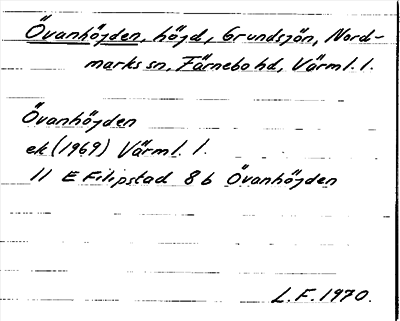 Övanhöjden, höjd, Grundsjön, Nord-
marks sn, Färnebo hd, Värml. l.
Övanhöjden
ek (1969) Värml. l.
11 E Filipstad 8 b Övanhöjden
L.F. 1970.